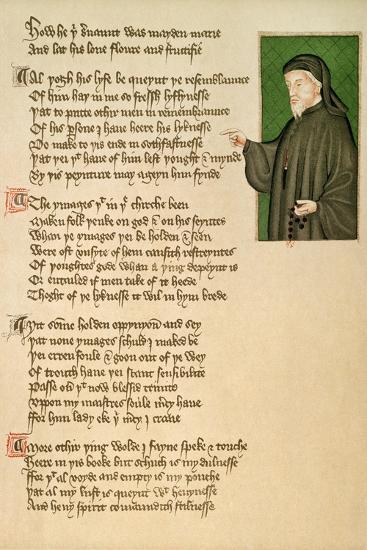 How he yͤ s̄uaunt was mayden marie
And lat his loue floure and fructifie
Al yogh his lyfe be queynt ye resemblaunce
Of him hay in me so fressh lyflynesse
Yat to putte othir men in remembraunce
Of his p̱sone I haue heere his lyknesse
Do make to yis ende in sothfastnesse
Yat yei yᵗ haue of him left yought & mynde
By yis peynture may ageyn him fynde
The ymages yᵗ in yͤ chirche been
Maken folk yenke on god & on his seyntes
Whan ye ymages yei beholden & seen
Were oft vnsyte of hem causith restreyntes
Of youghtes gode whan a ying depeynt is
Or entailed if men take of it heede
Thoght of ye lyknesse it wil in hym brede
Yit some holden oppynyoun and sey
Yat none ymages schuld I maked be
Yei erren foule & goon out of ye wey
Of trouth haue yei scant sensibilite
Passe ou̓ yᵗ now blessid trinite
Vpon my maistres soule m̓cy haue
ffor him lady eke yͥ m̓cy I craue
More othir ying wolde I fayne speke & touche
Heere in yis booke but schuch is my dulnesse
ffor yᵗ al voyde and empty is my pouche
Yat al my lust is queynt wᵗ heuynesse
And heuy spirit comaundith stilnesse